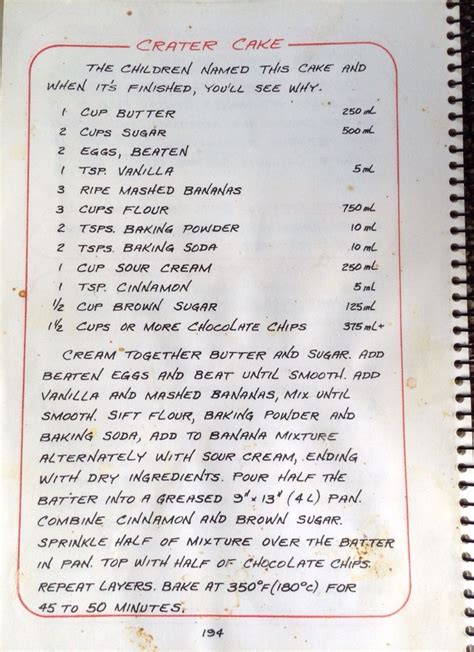 CRATER CAKE
THE CHILDREN NAMED THIS CAKE AND
WHEN IT'S FINISHED, YOU'LL SEE WHY.
1 CUP BUTTER 250 mL
2 CUPS SUGAR 500 mL
2 EGGS, BEATEN
1 TSP. VANILLA 5 mL
3 RIPE MASHED BANANAS
3 CUPS FLOUR 750 mL
2 TSPS. BAKING POWDER 10 mL
2 TSPS. BAKING SODA 10 mL
1 CUP SOUR CREAM 250 mL
1 TSP. CINNAMON 5 mL
½ CUP BROWN SUGAR 125 mL
1½ CUPS OR MORE CHOCOLATE CHIPS 375 mL+
CREAM TOGETHER BUTTER AND SUGAR. ADD
BEATEN EGGS AND BEAT UNTIL SMOOTH. ADD
VANILLA AND MASHED BANANAS, MIX UNTIL
SMOOTH. SIFT FLOUR, BAKING POWDER AND
BAKING SODA, ADD TO BANANA MIXTURE
ALTERNATELY WITH SOUR CREAM, ENDING
WITH DRY INGREDIENTS. POUR HALF THE
BATTER INTO A GREASED 9" x 13" (4 L) PAN.
COMBINE CINNAMON AND BROWN SUGAR.
SPRINKLE HALF OF MIXTURE OVER THE BATTER
IN PAN. TOP WITH HALF OF CHOCOLATE CHIPS.
REPEAT LAYERS. BAKE AT 350°F (180°C) FOR
45 TO 50 MINUTES.
194